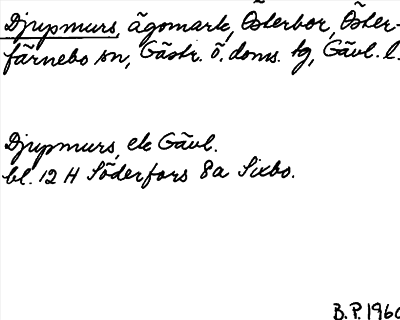 Djupmurs, ägomark, Österbor, Öster-
färnebo sn, Gästr. ö. doms. tg, Gävl. l.
Djupmurs, ek Gävl.
bl. 12 H Söderfors 8a Sixbo.
B.P. 1960